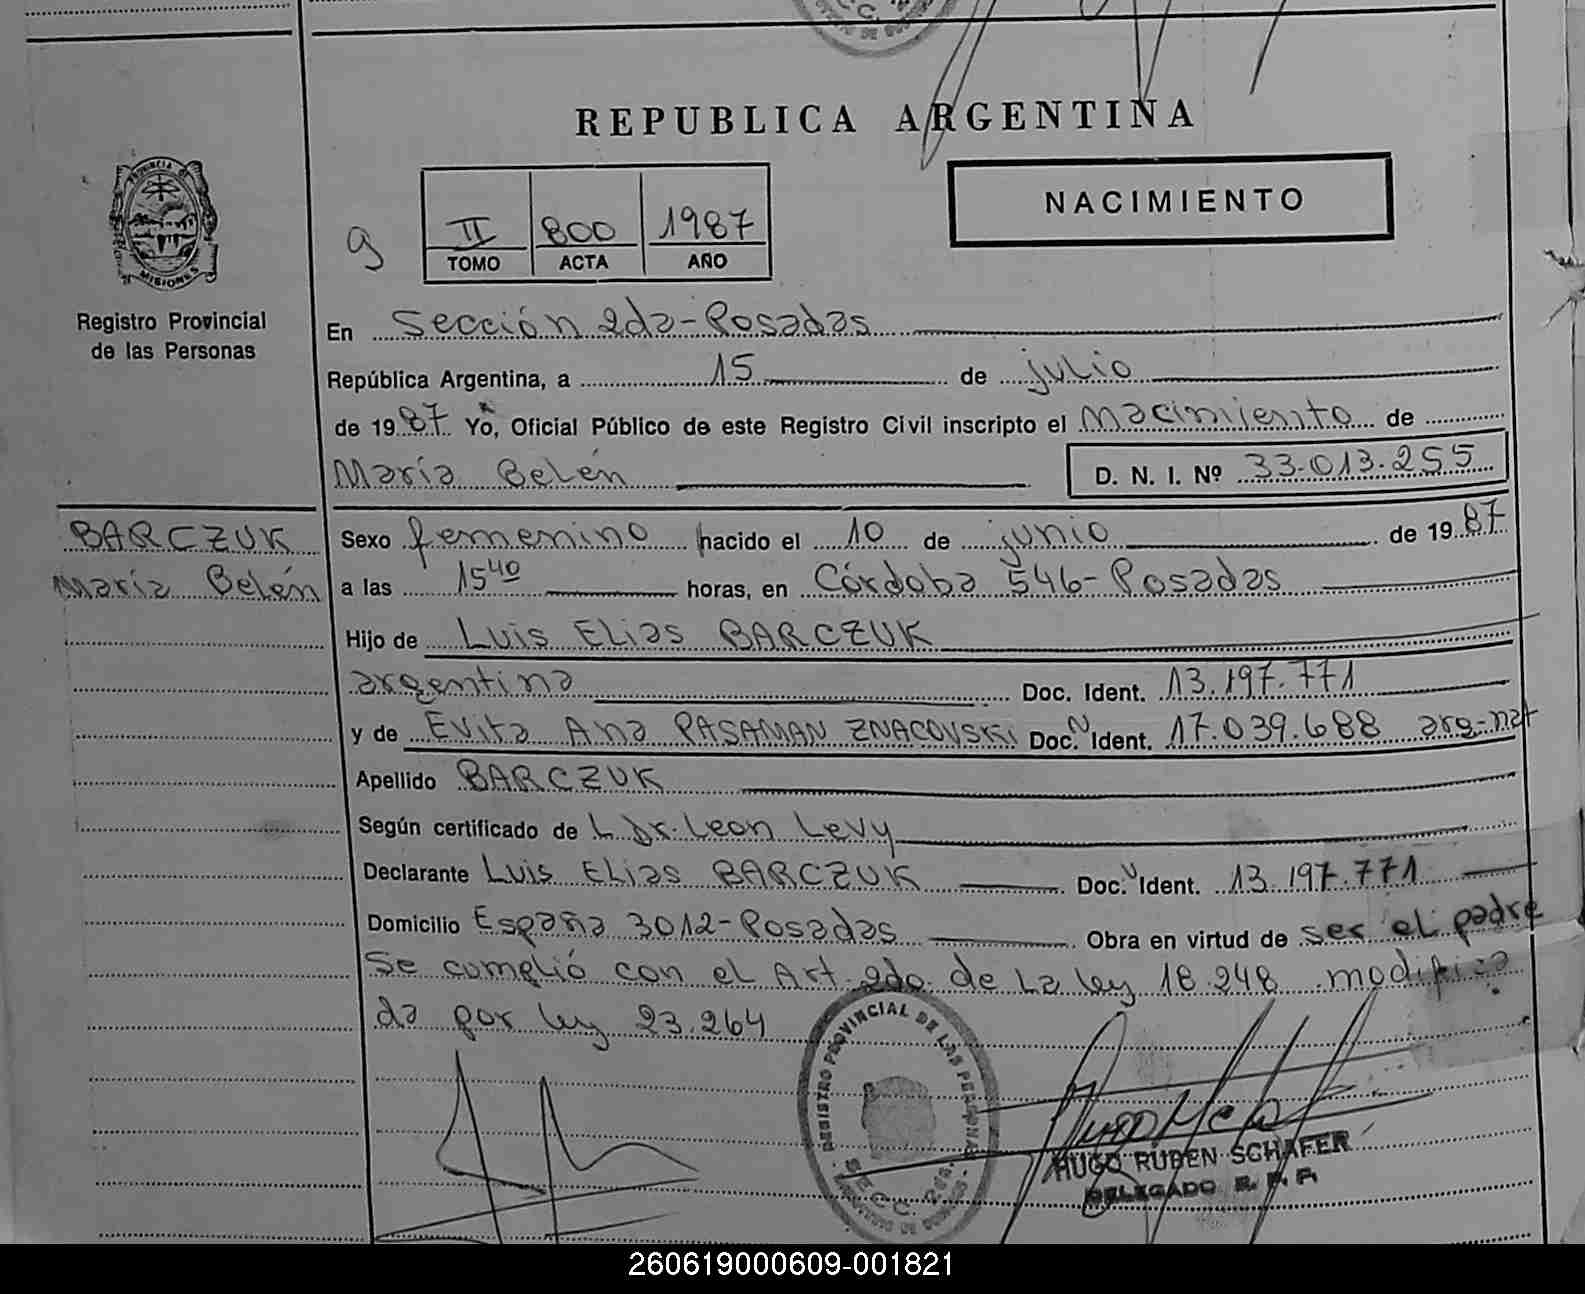 REPUBLICA ARGENTINA
NACIMIENTO
9
II 800 1987
TOMO ACTA AÑO
PROVINCIA DE
MISIONES
Registro Provincial
de las Personas
En Sección 2da-Posadas
República Argentina, a 15 de julio
de 1987 Yo, Oficial Público de este Registro Civil inscripto el nacimiento de
María Belén D. N. I. Nº 33.013.255
BARCZUK
María Belén
Sexo femenino nacido el 10 de junio de 1987
a las 15 40 horas, en Córdoba 546-Posadas
Hijo de Luis Elias BARCZUK
argentina Doc. Ident. 13.197.771
y de Evita Ana PASAMAN ZNACOVSKI Doc. Ident. 17.039.688 arg-nat
Apellido BARCZUK
Según certificado de L Dr. Leon Levy
Declarante Luis Elias BARCZUK Doc. Ident. 13.197.771
Domicilio España 3012-Posadas Obra en virtud de ser el padre
Se cumplió con el Art. 2do. de La ley 18.248 modifica
da por ley 23.264
REGISTRO PROVINCIAL DE LAS PERSONAS
SECC. 2da.
HUGO RUBEN SCHAFER
DELEGADO R. P. P.
260619000609-001821